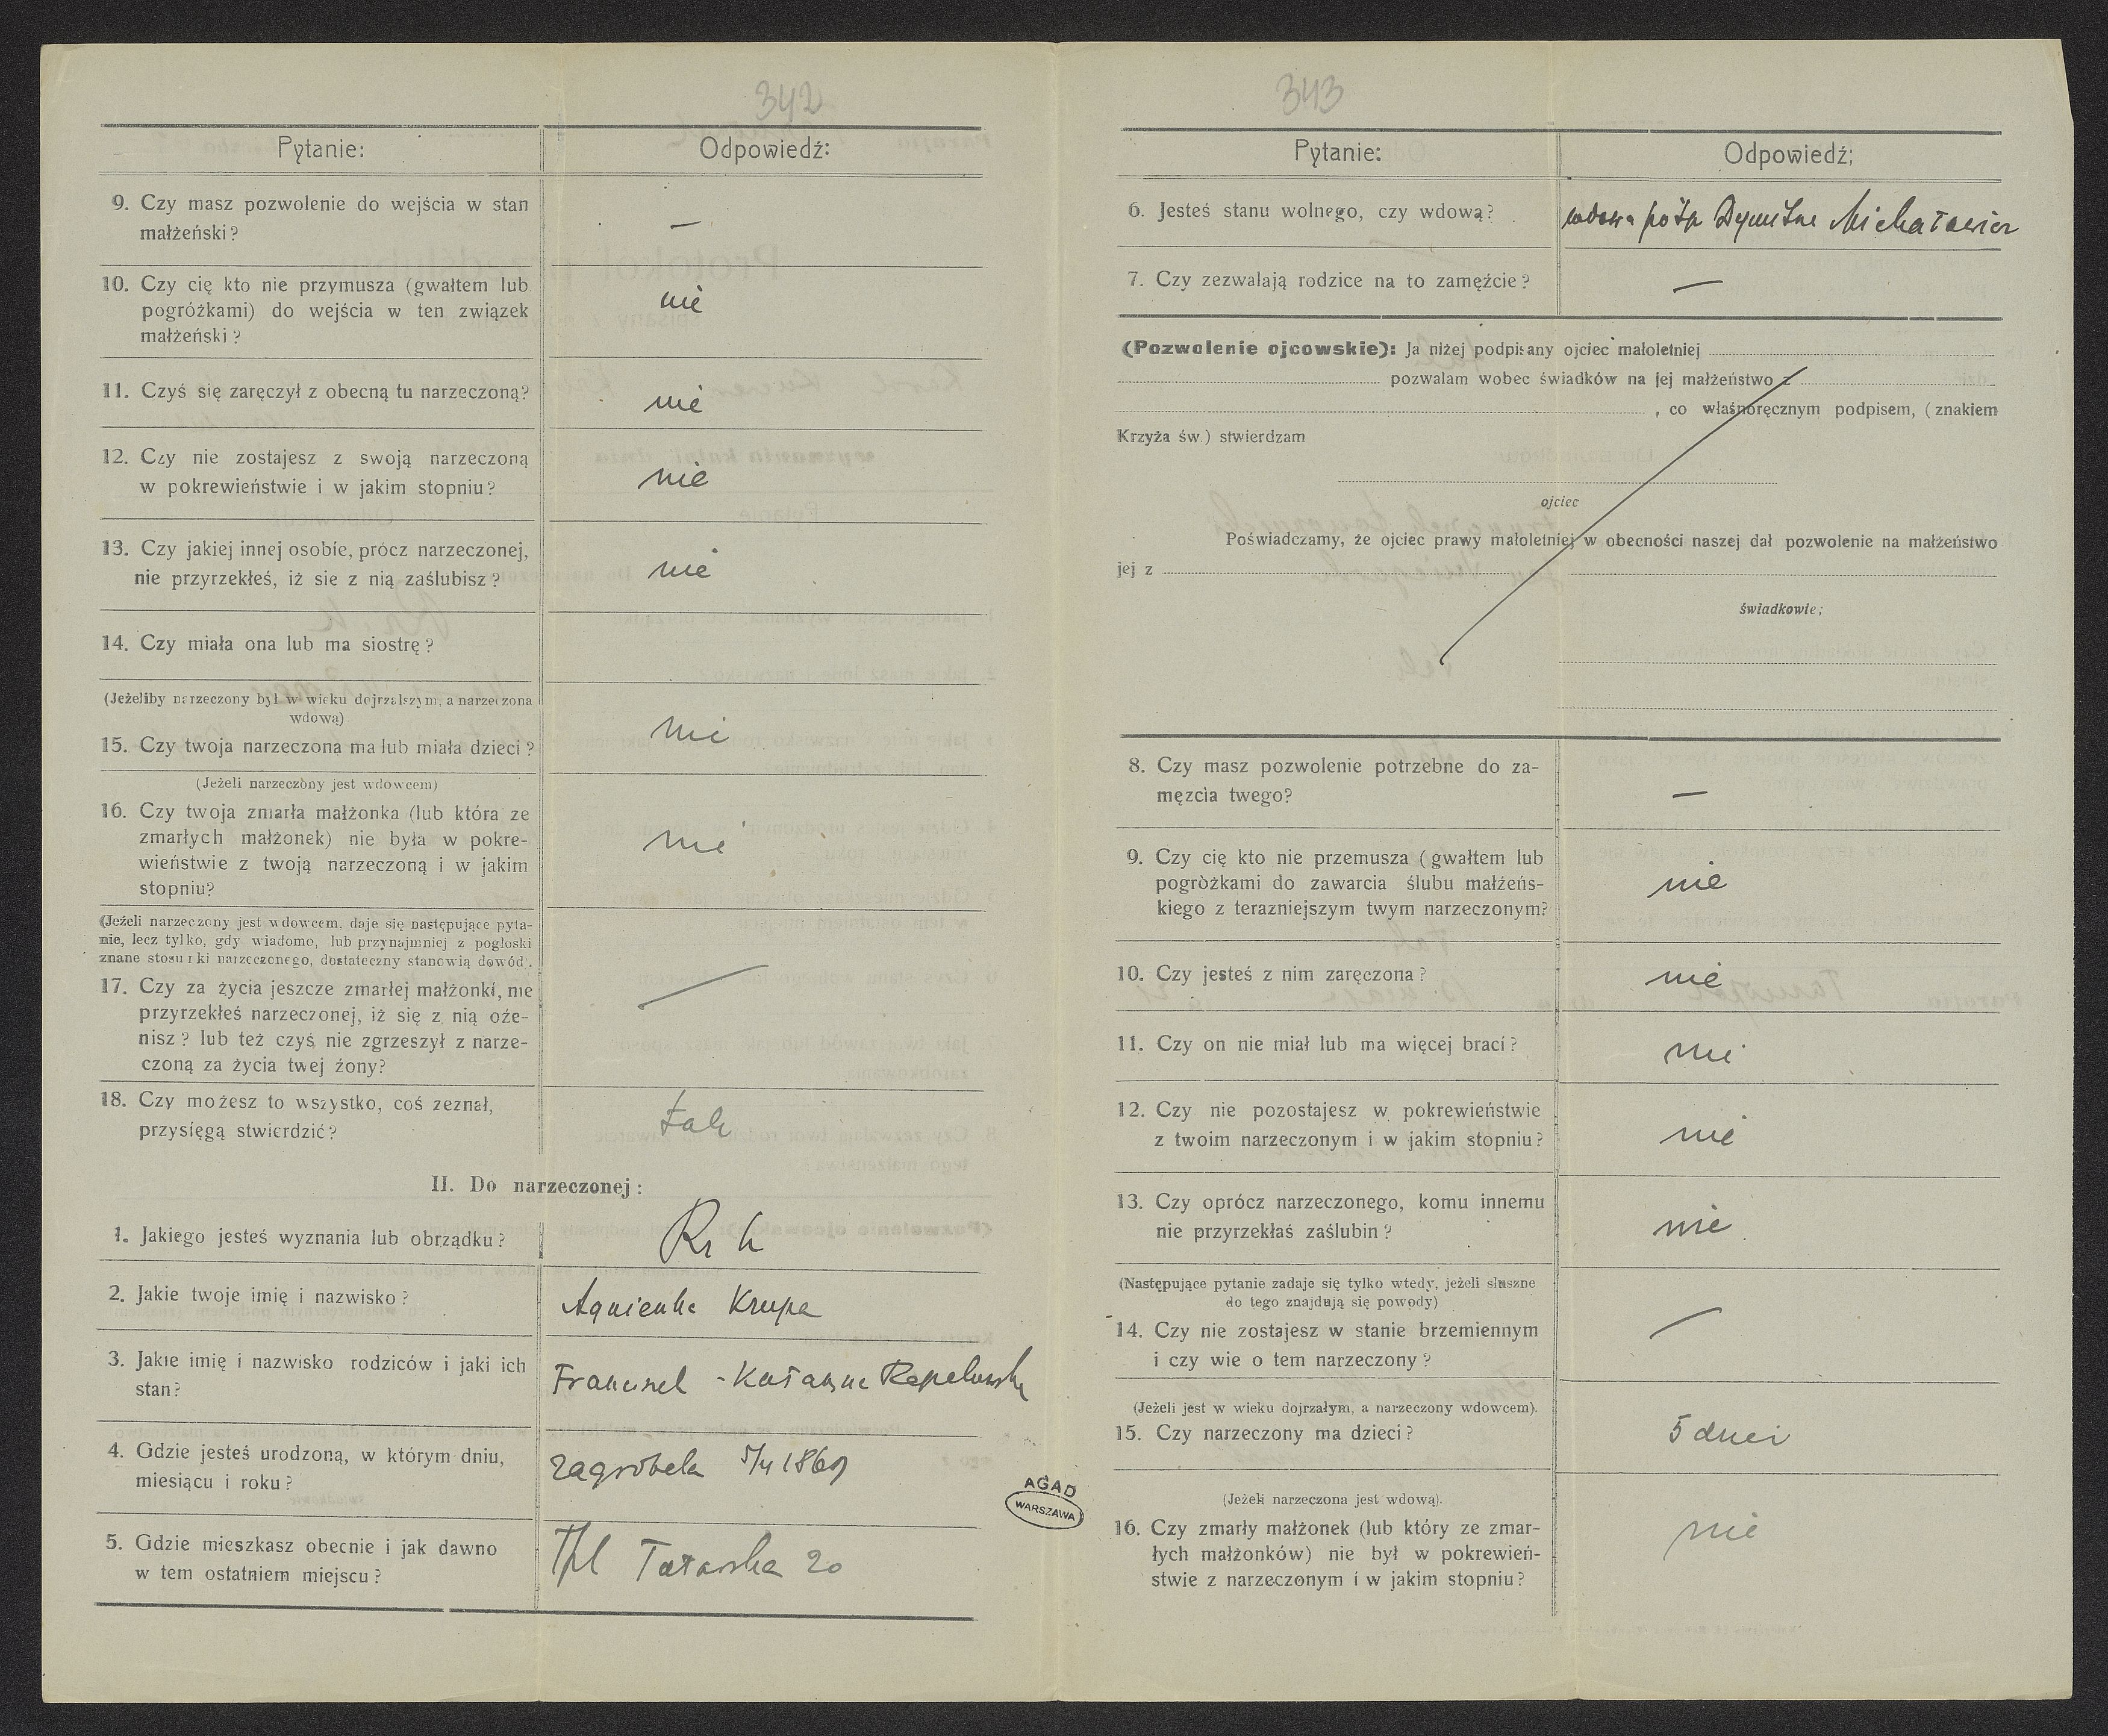 342
Pytanie: Odpowiedź:
9. Czy masz pozwolenie do wejścia w stan
małżeński? —
10. Czy cię kto nie przymusza (gwałtem lub
pogróżkami) do wejścia w ten związek
małżeński? nie
11. Czyś się zaręczył z obecną tu narzeczoną? nie
12. Czy nie zostajesz z swoją narzeczoną
w pokrewieństwie i w jakim stopniu? nie
13. Czy jakiej innej osobie, prócz narzeczonej,
nie przyrzekłeś, iż sie z nią zaślubisz? nie
14. Czy miała ona lub ma siostrę?
(Jeżeliby narzeczony był w wieku dojrzalszym, a narzeczona
wdową)
15. Czy twoja narzeczona ma lub miała dzieci? nie
(Jeżeli narzeczony jest wdowcem)
16. Czy twoja zmarła małżonka (lub która ze
zmarłych małżonek) nie była w pokre-
wieństwie z twoją narzeczoną i w jakim
stopniu? nie
(Jeżeli narzeczony jest wdowcem, daje się następujące pyta-
nie, lecz tylko, gdy wiadomo, lub przynajmniej z pogłoski
znane stosunki narzeczonego, dostateczny stanowią dowód).
17. Czy za życia jeszcze zmarłej małżonki, nie
przyrzekłeś narzeczonej, iż się z nią oże-
nisz? lub też czyś nie zgrzeszył z narze-
czoną za życia twej żony? —
18. Czy możesz to wszystko, coś zeznał,
przysięgą stwierdzić? tak
II. Do narzeczonej:
1. Jakiego jesteś wyznania lub obrządku? Rz k
2. Jakie twoje imię i nazwisko? Agnieszka Krupa
3. Jakie imię i nazwisko rodziców i jaki ich
stan? Franciszek - Katarzyna Kapeluszka
4. Gdzie jesteś urodzoną, w którym dniu,
miesiącu i roku? Zagrobela 5/4 1869
5. Gdzie mieszkasz obecnie i jak dawno
w tem ostatniem miejscu? Tpl Tatarska 20
AGAD
WARSZAWA
343
Pytanie: Odpowiedź;
6. Jesteś stanu wolnego, czy wdową? wdowa po śp Dymitrze Michałowicz
7. Czy zezwalają rodzice na to zamęźcie? —
(Pozwolenie ojcowskie): Ja niżej podpisany ojciec małoletniej
pozwalam wobec świadków na jej małżeństwo z
, co własnoręcznym podpisem, (znakiem
Krzyża św.) stwierdzam
ojciec
Poświadczamy, że ojciec prawy małoletniej w obecności naszej dał pozwolenie na małżeństwo
jej z
świadkowie;
8. Czy masz pozwolenie potrzebne do za-
męzcia twego? —
9. Czy cię kto nie przemusza (gwałtem lub
pogróżkami do zawarcia ślubu małżeńs-
kiego z terazniejszym twym narzeczonym? nie
10. Czy jesteś z nim zaręczona? nie
11. Czy on nie miał lub ma więcej braci? nie
12. Czy nie pozostajesz w pokrewieństwie
z twoim narzeczonym i w jakim stopniu? nie
13. Czy oprócz narzeczonego, komu innemu
nie przyrzekłaś zaślubin? nie
(Następujące pytanie zadaje się tylko wtedy, jeżeli słuszne
do tego znajdują się powody)
14. Czy nie zostajesz w stanie brzemiennym
i czy wie o tem narzeczony? —
(Jeżeli jest w wieku dojrzałym, a narzeczony wdowcem).
15. Czy narzeczony ma dzieci? 5 dzieci
(Jeżeli narzeczona jest wdową).
16. Czy zmarły małżonek (lub który ze zmar-
łych małżonków) nie był w pokrewień-
stwie z narzeczonym i w jakim stopniu? nie